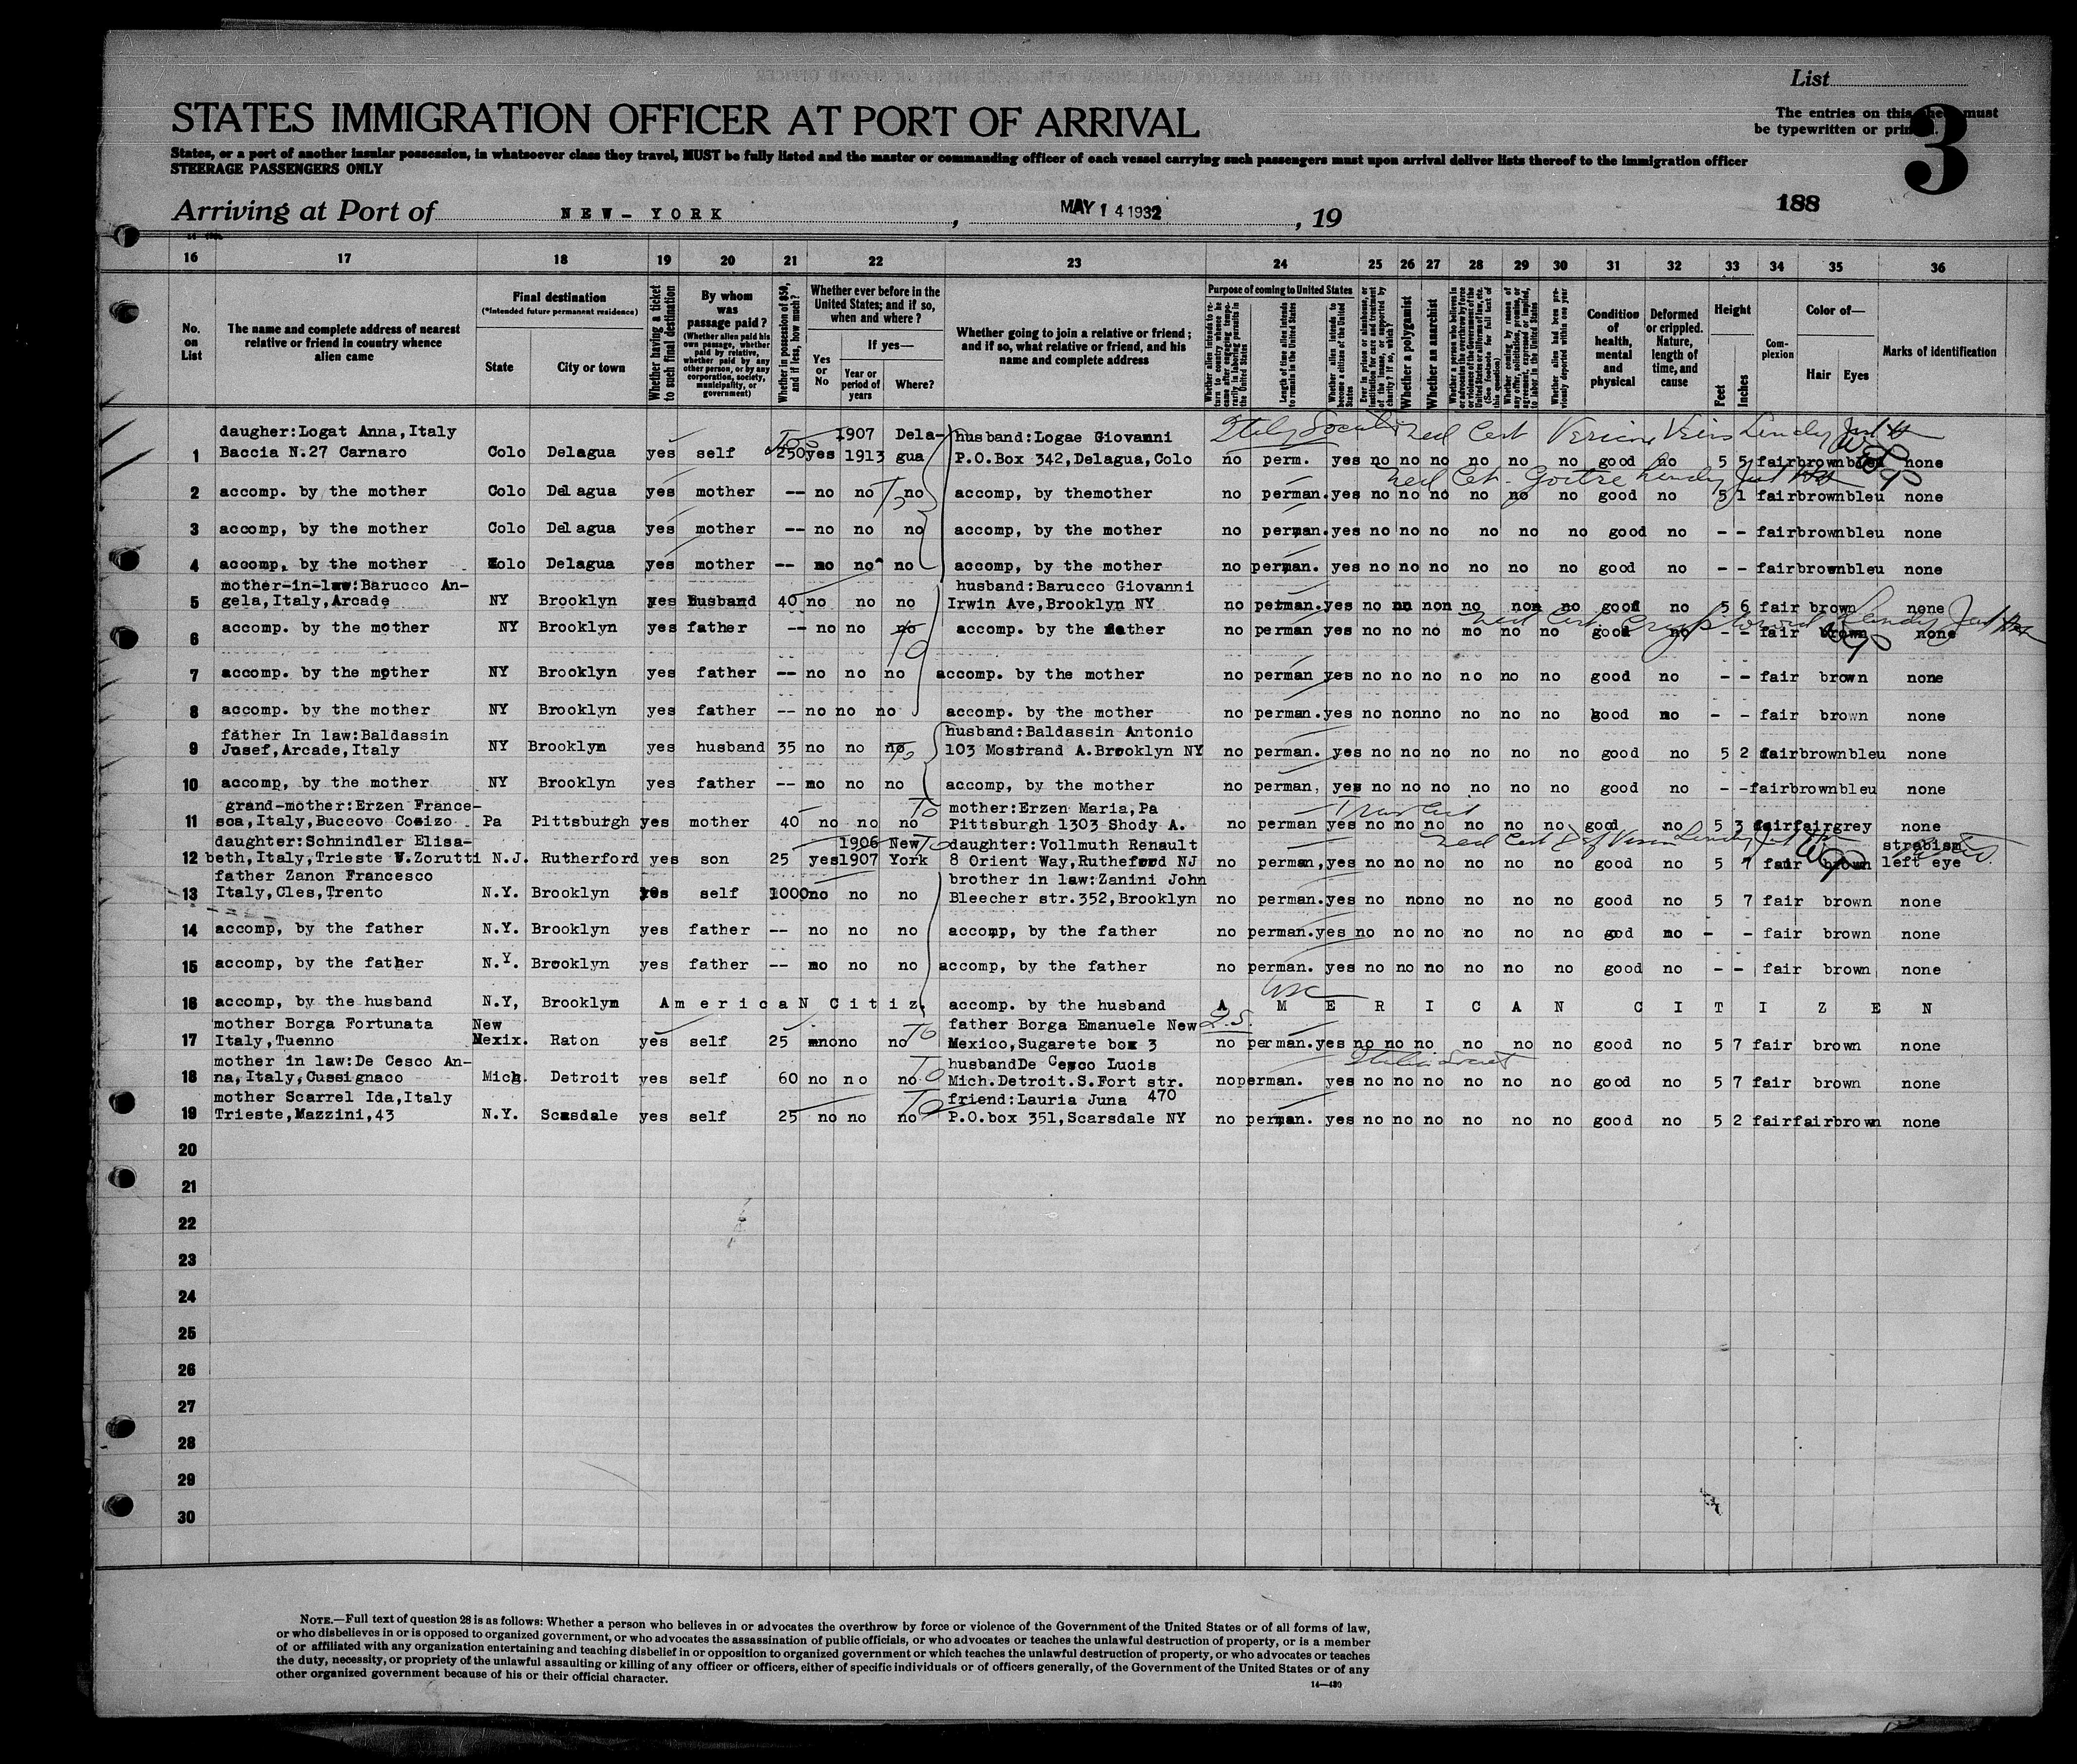 List
The entries on this sheet must
be typewritten or printed.
3
STATES IMMIGRATION OFFICER AT PORT OF ARRIVAL
States, or a port of another insular possession, in whatsoever class they travel, MUST be fully listed and the master or commanding officer of each vessel carrying such passengers must upon arrival deliver lists thereof to the immigration officer
STEERAGE PASSENGERS ONLY
Arriving at Port of NEW-YORK, MAY 14 1932, 19
188
16 17 18 19 20 21 22 23 24 25 26 27 28 29 30 31 32 33 34 35 36
No. on List
The name and complete address of nearest relative or friend in country whence alien came
Final destination
(*Intended future permanent residence)
State
City or town
Whether having a ticket to such final destination
By whom was passage paid?
(Whether alien paid his own passage, whether paid by relative, whether paid by any other person, or by any corporation, society, municipality, or government)
Whether in possession of $50, and if less, how much?
Whether ever before in the United States; and if so, when and where?
Yes or No
If yes—
Year or period of years
Where?
Whether going to join a relative or friend; and if so, what relative or friend, and his name and complete address
Purpose of coming to United States
Length of time alien intends to remain in the United States
Whether alien intends to become a citizen of the United States
Whether a polygamist
Whether an anarchist
Condition of health, mental and physical
Deformed or crippled. Nature, length of time, and cause
Height
Feet
Inches
Complexion
Color of—
Hair
Eyes
Marks of identification
daugher:Logat Anna,Italy 1907 Dela- husband:Logae Giovanni
1 Baccia N.27 Carnaro Colo Delagua yes self 250 yes 1913 gua P.O.Box 342,Delagua,Colo no perm. yes no no no no no no good no 5 5 fair brown bleu none
2 accomp. by the mother Colo Delagua yes mother -- no no no accomp, by themother no perman. yes no no no no no no good no 5 1 fair brown bleu none
3 accomp, by the mother Colo Delagua yes mother -- no no no accomp, by the mother no perman. yes no no no no no no good no - - fair brown bleu none
4 accomp, by the mother Colo Delagua yes mother -- no no no accomp, by the mother no perman. yes no no no no no no good no - - fair brown bleu none
mother-in-law:Barucco An- husband:Barucco Giovanni
5 gela,Italy,Arcade NY Brooklyn yes husband 40 no no no Irwin Ave,Brooklyn NY no perman. yes no no non no non no good no 5 6 fair brown none
6 accomp. by the mother NY Brooklyn yes father -- no no no accomp. by the mather no perman yes no no no mo no no good no - - fair brown none
7 accomp. by the mother NY Brooklyn yes father -- no no no accomp. by the mother no perman yes no no no no no no good no - - fair brown none
8 accomp. by the mother NY Brooklyn yes father -- no no no accomp. by the mother no perman. yes no no nno no no no good no - - fair brown none
father In law:Baldassin husband:Baldassin Antonio
9 Jusef,Arcade,Italy NY Brooklyn yes husband 35 no no no 103 Mostrand A.Brooklyn NY no perman. yes no no no no no no good no 5 2 fair brown bleu none
10 accomp, by the mother NY Brooklyn yes father -- no no no accomp, by the mother no perman, yes no no no no no no good no - - fair brown bleu none
grand-mother:Erzen France- mother:Erzen Maria,Pa
11 sca,Italy,Buccovo Cosizo Pa Pittsburgh yes mother 40 no no no Pittsburgh 1303 Shody A. no perman yes no no no no no no good no 5 3 fair fair grey none
daughter:Schnindler Elisa- 1906 New daughter:Vollmuth Renault strabism
12 beth,Italy,Trieste V.Zorutti N.J. Rutherford yes son 25 yes 1907 York 8 Orient Way,Rutheford NJ no perman, yes no no no no no no good no 5 7 fair brown left eye
father Zanon Francesco brother in law:Zanini John
13 Italy,Cles,Trento N.Y. Brooklyn yes self 1000 no no no Bleecher str.352,Brooklyn no perman. yes no no no no no no good no 5 7 fair brown none
14 accomp, by the father N.Y. Brooklyn yes father -- no no no accomp, by the father no perman. yes no no no no no no god no - - fair brown none
15 accomp, by the father N.Y. Brooklyn yes father -- no no no accomp, by the father no perman. yes no no no no no no good no - - fair brown none
16 accomp, by the husband N.Y, Brooklyn AmericaN Citiz. accomp. by the husband AMERICAN CITIZEN
mother Borga Fortunata New father Borga Emanuele New
17 Italy,Tuenno Mexix. Raton yes self 25 no no no Mexico,Sugarete box 3 no perman. yes no no no no no no good no 5 7 fair brown none
mother in law:De Cesco An- husbandDe Cesco Lucis
18 na,Italy,Cussignaco Mich. Detroit yes self 60 no no no Mich.Detroit.S.Fort str. no perman. yes no no no no no no good no 5 7 fair brown none
mother Scarrel Ida,Italy friend:Lauria Juna 470
19 Trieste,Mazzini,43 N.Y. Scasdale yes self 25 no no no P.O.box 351,Scarsdale NY no perman. yes no no no no no no good no 5 2 fair fair brown none
20
21
22
23
24
25
26
27
28
29
30
NOTE.—Full text of question 28 is as follows: Whether a person who believes in or advocates the overthrow by force or violence of the Government of the United States or of all forms of law,
or who disbelieves in or is opposed to organized government, or who advocates the assassination of public officials, or who advocates or teaches the unlawful destruction of property, or is a member
of or affiliated with any organization entertaining and teaching disbelief in or opposition to organized government or which teaches the unlawful destruction of property, or who advocates or teaches
the duty, necessity, or propriety of the unlawful assaulting or killing of any officer or officers, either of specific individuals or of officers generally, of the Government of the United States or of any
other organized government because of his or their official character.
14—480